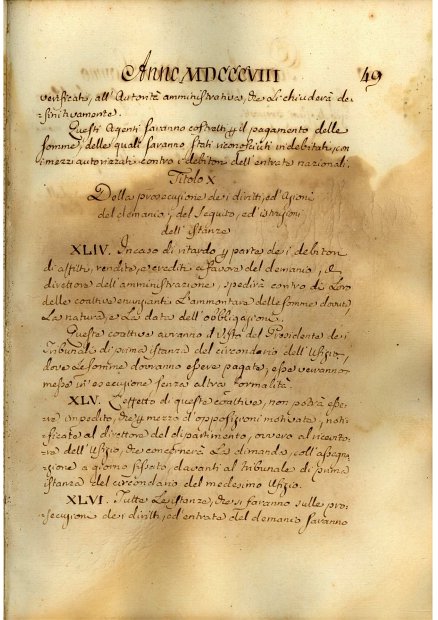 Anno MDCCCVIII 49
verificate, all'Autorità amministrativa, che li chiuderà de-
finitivamente.
Questi Agenti saranno costretti p il pagamento delle
somme, delle quali saranno stati riconosciuti indebitati, coi
mezzi autorizzati contro i debitori dell'entrate nazionali.
Titolo X
Della prosecuzione dei diritti, ed'Azioni
del demanio, del Seguito, ed istruzioni
dell'istanze
XLIV. In caso di ritardo p parte dei debitori
di affitti, rendite, e crediti a favore del demanio, il
direttore dell'amministrazione, spedirà contro di Loro
delle coattive enunzianti L'ammontare delle somme dovute,
La natura, e La data dell'obbligazione.
Queste coattive avranno il Visto del Presidente dei
Tribunali di prima istanza del circondario dell'Ufizio,
dove Le somme dovranno essere pagate; esse verranno
messe in esecuzione senza altra formalità.
XLV. L'effetto di queste coattive, non potrà esse-
re impedito, che p mezzo d'opposizioni motivate, noti-
ficate al direttore del dipartimento, ovvero al ricevito-
re dell'Ufizio, che conterrà La dimanda, coll'assegna-
zione a giorno fissato, davanti al Tribunale di prima
istanza del circondario del medesimo Ufizio.
XLVI. Tutte Le istanze, che si faranno sulle pro-
secuzioni dei diritti, ed'entrate del demanio saranno